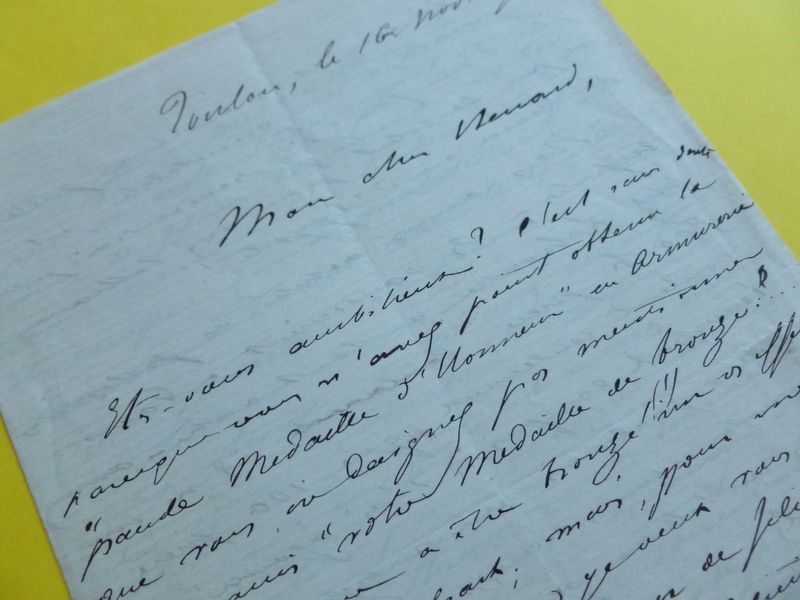 Toulon, le 16 Nov
Mon cher
Etes-vous ambitieux? C'est sans doute
parceque vous n'avez point obtenu la
"grande Medaille d'Honneur" en Armurerie
que vous ne daignez pas mentionner
"votre Medaille de bronze!..
a être bronzé!!!
mais, pour
je veux vous
de